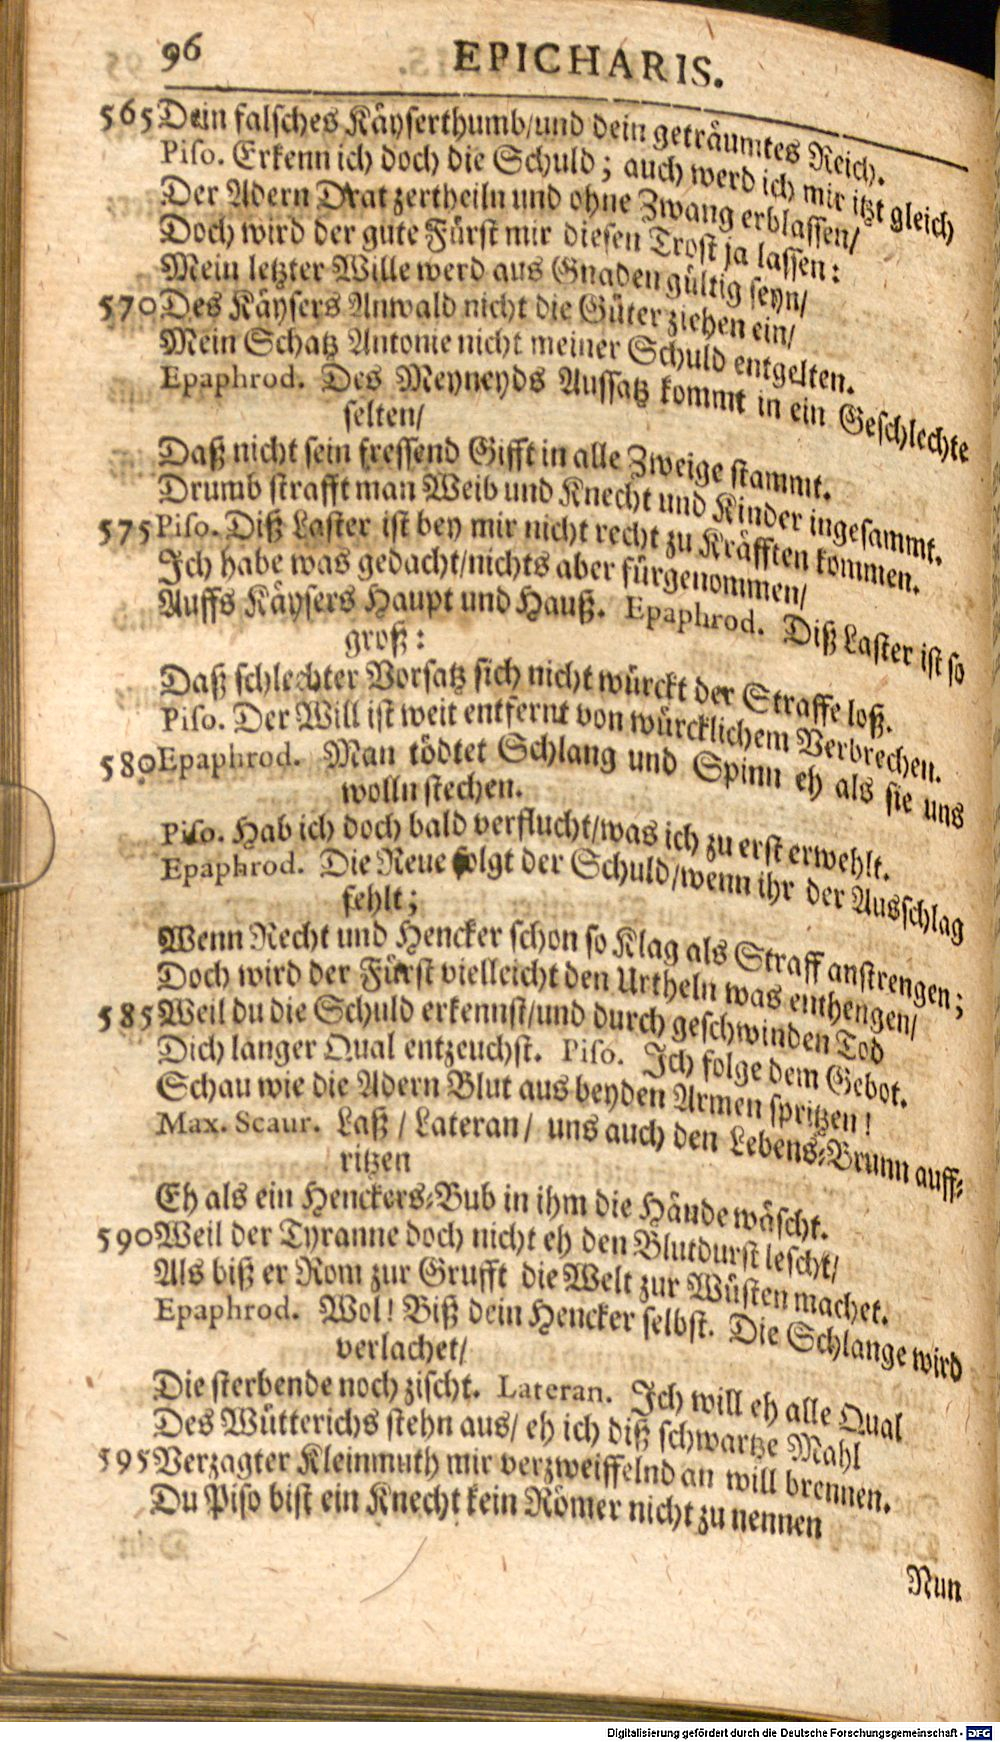 96 EPICHARIS.
565 Dein falsches Käyserthumb/und dein geträumtes Reich.
Piso. Erkenn ich doch die Schuld; auch werd ich mir itzt gleich
Der Adern Drat zertheiln und ohne Zwang erblassen/
Doch wird der gute Fürst mir diesen Trost ja lassen:
Mein letzter Wille werd aus Gnaden gültig seyn/
570 Des Käysers Anwald nicht die Güter ziehen ein/
Mein Schatz Antonie nicht meiner Schuld entgelten.
Epaphrod. Des Meyneyds Aussatz kommt in ein Geschlechte
selten/
Daß nicht sein fressend Gifft in alle Zweige stammt.
Drumb strafft man Weib und Knecht und Kinder ingesammt.
575 Piso. Diß Laster ist bey mir nicht recht zu Kräfften kommen.
Ich habe was gedacht/nichts aber fürgenommen/
Auffs Käysers Haupt und Hauß. Epaphrod. Diß Laster ist so
groß:
Daß schlechter Vorsatz sich nicht würckt der Straffe loß.
Piso. Der Will ist weit entfernt von würcklichem Verbrechen.
580 Epaphrod. Man tödtet Schlang und Spinn eh als sie uns
wolln stechen.
Piso. Hab ich doch bald verflucht/was ich zu erst erwehlt.
Epaphrod. Die Reue folgt der Schuld/wenn ihr der Ausschlag
fehlt;
Wenn Recht und Hencker schon so Klag als Straff anstrengen;
Doch wird der Fürst vielleicht den Urtheln was enthengen/
585 Weil du die Schuld erkennst/und durch geschwinden Tod
Dich langer Qual entzeuchst. Piso. Ich folge dem Gebot.
Schau wie die Adern Blut aus beyden Armen spritzen!
Max. Scaur. Laß / Lateran/ uns auch den Lebens-Brunn auff-
ritzen
Eh als ein Henckers-Bub in ihm die Hände wäscht.
590 Weil der Tyranne doch nicht eh den Blutdurst lescht/
Als biß er Rom zur Grufft die Welt zur Wüsten machet.
Epaphrod. Wol! Biß dein Hencker selbst. Die Schlange wird
verlachet/
Die sterbende noch zischt. Lateran. Ich will eh alle Qual
Des Wütterichs stehn aus/ eh ich diß schwartze Mahl
595 Verzagter Kleinmuth mir verzweiffelnd an will brennen.
Du Piso bist ein Knecht kein Römer nicht zu nennen
Nun
Digitalisierung gefördert durch die Deutsche Forschungsgemeinschaft - DFG